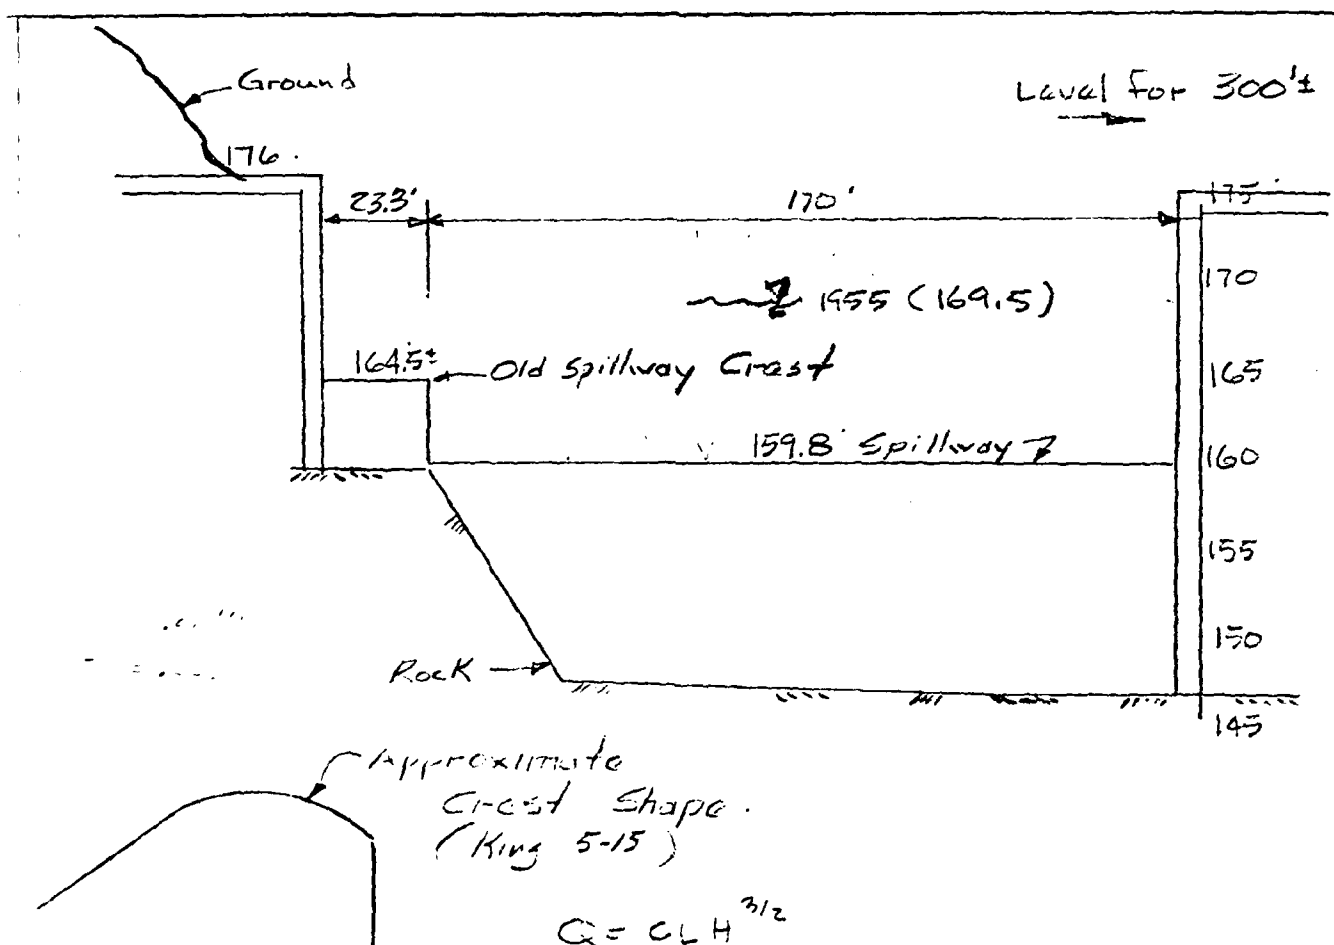 Ground
Level For 300'±
176
175
23.3'
170'
170
1955 (169.5)
164.5±
Old Spillway Crest
165
159.8 Spillway
160
155
150
Rock
145
Approximate
Crest Shape.
(King 5-15)
Q = CLH^3/2